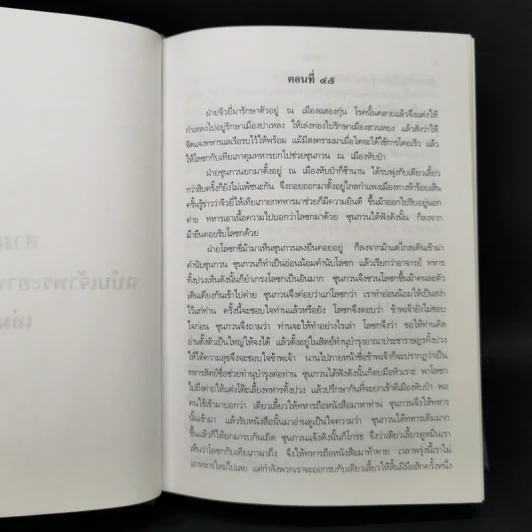 สาม
ฉบับเจ้าพระยา
เล่ม
ตอนที่ ๔๕
ฝ่ายจิวยี่มารักษาตัวอยู่ ณ เมืองฉสองกุ๋น โรคนั้นคลายแล้วจึงแต่งให้
กำเหลงไปอยู่รักษาเมืองปาเหลง ให้เล่งทองไปรักษาเมืองฮวนหยง แล้วสั่งว่าให้
จัดแจงทหารแลเรือรบไว้ให้พร้อม แม้มีสงครามมาเมื่อใดจะได้ใช้การโดยเร็ว แล้ว
ให้โลซกกับเทียเภาคุมทหารยกไปช่วยซุนกวน ณ เมืองหับป๋า
ฝ่ายซุนกวนยกมาตั้งอยู่ ณ เมืองหับป๋าก็ช้านาน ได้รบพุ่งกับเตียวเลี้ยว
กว่าสิบครั้งก็ยังไม่แพ้ชนะกัน จึงถอยออกมาตั้งอยู่ไกลกำแพงเมืองทางห้าร้อยเส้น
ครั้นรู้ข่าวว่าจิวยี่ให้เทียเภายกทหารมาช่วยก็มีความยินดี ขึ้นม้าออกไปรับอยู่นอก
ค่าย ทหารเอาเนื้อความไปบอกว่าโลซกมาด้วย ซุนกวนได้ฟังดังนั้น ก็ลงจาก
ม้ายืนคอยรับโลซกด้วย
ฝ่ายโลซกขี่ม้ามาเห็นซุนกวนลงยืนคอยอยู่ ก็ลงจากม้าแต่ไกลเดินเข้ามา
คำนับซุนกวน ซุนกวนก็ทำเป็นอ่อนน้อมคำนับโลซก แล้วเรียกว่าอาจารย์ ทหาร
ทั้งปวงเห็นดังนั้นก็ยำเกรงโลซกเป็นอันมาก ซุนกวนจึงชวนโลซกขึ้นม้าคนละตัว
เดินเคียงกันเข้าไปค่าย ซุนกวนจึงค่อยว่าแก่โลซกว่า เราทำอ่อนน้อมให้เป็นสง่า
ไว้แก่ท่าน ครั้งนี้จะชอบใจท่านแล้วหรือยัง โลซกจึงตอบว่า ข้าพเจ้ายังไม่ชอบ
ใจก่อน ซุนกวนจึงถามว่า ท่านจะให้ทำอย่างไรเล่า โลซกจึงว่า ขอให้ท่านคิด
อ่านตั้งตัวเป็นใหญ่ให้จงได้ แล้วตั้งอยู่ในสัตย์ทำนุบำรุงอาณาประชาราษฎรทั้งปวง
ให้ได้ความสุขจึงจะชอบใจข้าพเจ้า นานไปภายหน้าชื่อข้าพเจ้าก็จะปรากฏว่าเป็น
ทหารสัตย์ซื่อช่วยทำนุบำรุงต่อท่าน ซุนกวนได้ฟังดังนั้นก็ตบมือหัวเราะ พาโลซก
ไปถึงค่ายให้แต่งโต๊ะเลี้ยงทหารทั้งปวง แล้วปรึกษากันที่จะยกเข้าตีเมืองหับป๋า พอ
คนใช้เข้ามาบอกว่า เตียวเลี้ยวให้ทหารถือหนังสือมาหาท่าน ซุนกวนจึงให้ทหาร
นั้นเข้ามา แล้วรับหนังสือนั้นมาอ่านดูเป็นใจความว่า ซุนกวนได้ทหารเติมมาก
ขึ้นแล้วก็ให้ยกมารบกันเถิด ซุนกวนแจ้งดังนั้นก็โกรธ จึงว่าเตียวเลี้ยวดูหมิ่นเรา
เห็นว่าโลซกกับเทียเภามาถึง จึงให้ทหารถือหนังสือมาท้าทาย เวลาพรุ่งนี้เราไม่
เอาทหารใหม่ไปเลย แต่กำลังพวกเราจะออกรบกับเตียวเลี้ยวให้สิ้นฝีมือสักครั้งหนึ่ง